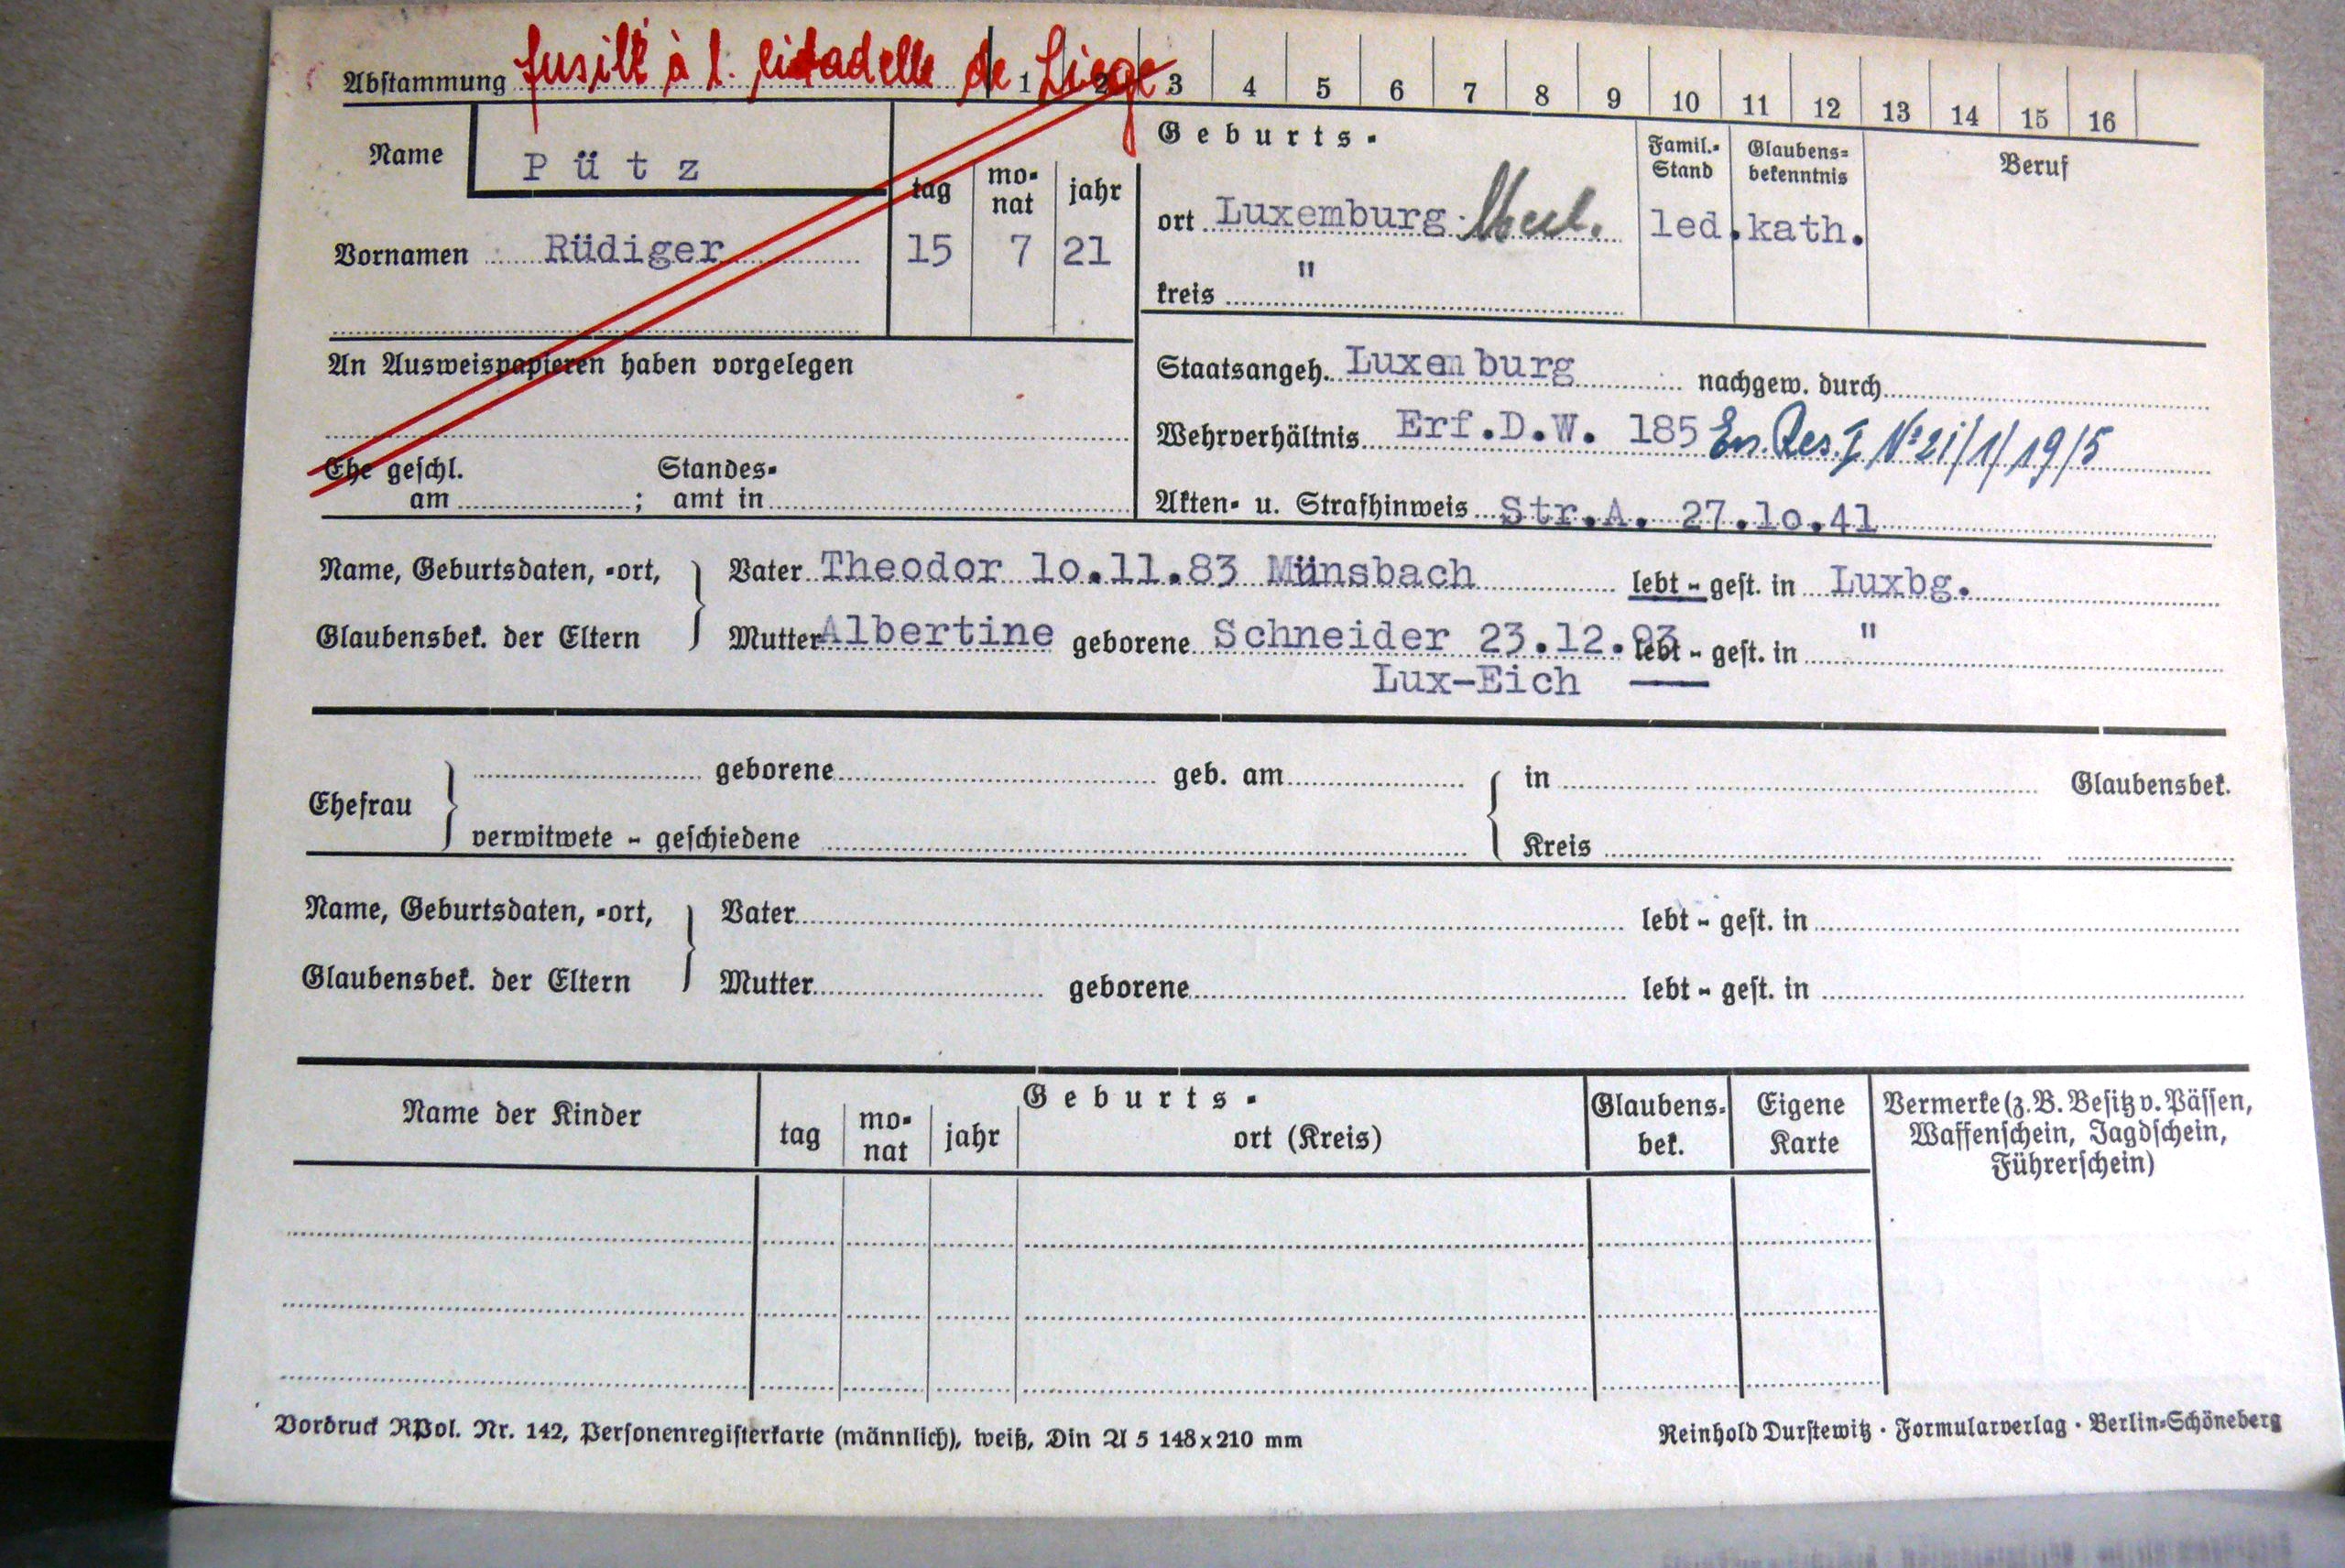 Abstammung fusillé à l. citadelle de Liege 1 2 3 4 5 6 7 8 9 10 11 12 13 14 15 16
Name Pütz
Vornamen Rüdiger
Geburts-
tag monat jahr
15 7 21
ort Luxemburg
kreis "
Famil.-Stand
led.
Glaubens-bekenntnis
kath.
Beruf
An Ausweispapieren haben vorgelegen
Ehe geschl. Standes-
am ; amt in
Staatsangeh. Luxemburg nachgew. durch
Wehrverhältnis Erf.D.W. 185 En. Res. I N° 21/1/19/5
Akten- u. Strafhinweis Str.A. 27.lo.41
Name, Geburtsdaten, -ort, Vater Theodor lo.11.83 Münsbach lebt - gest. in Luxbg.
Glaubensbek. der Eltern Mutter Albertine geborene Schneider 23.12.93 lebt - gest. in "
Lux-Eich
Ehefrau geborene geb. am in Glaubensbek.
verwitwete - geschiedene Kreis
Name, Geburtsdaten, -ort, Vater lebt - gest. in
Glaubensbek. der Eltern Mutter geborene lebt - gest. in
Name der Kinder
Geburts-
tag monat jahr ort (Kreis)
Glaubens-bek.
Eigene Karte
Vermerke (z.B. Besitz v. Pässen,
Waffenschein, Jagdschein,
Führerschein)
Vordruck RPol. Nr. 142, Personenregisterkarte (männlich), weiß, Din A 5 148x210 mm
Reinhold Durstewitz · Formularverlag · Berlin-Schöneberg